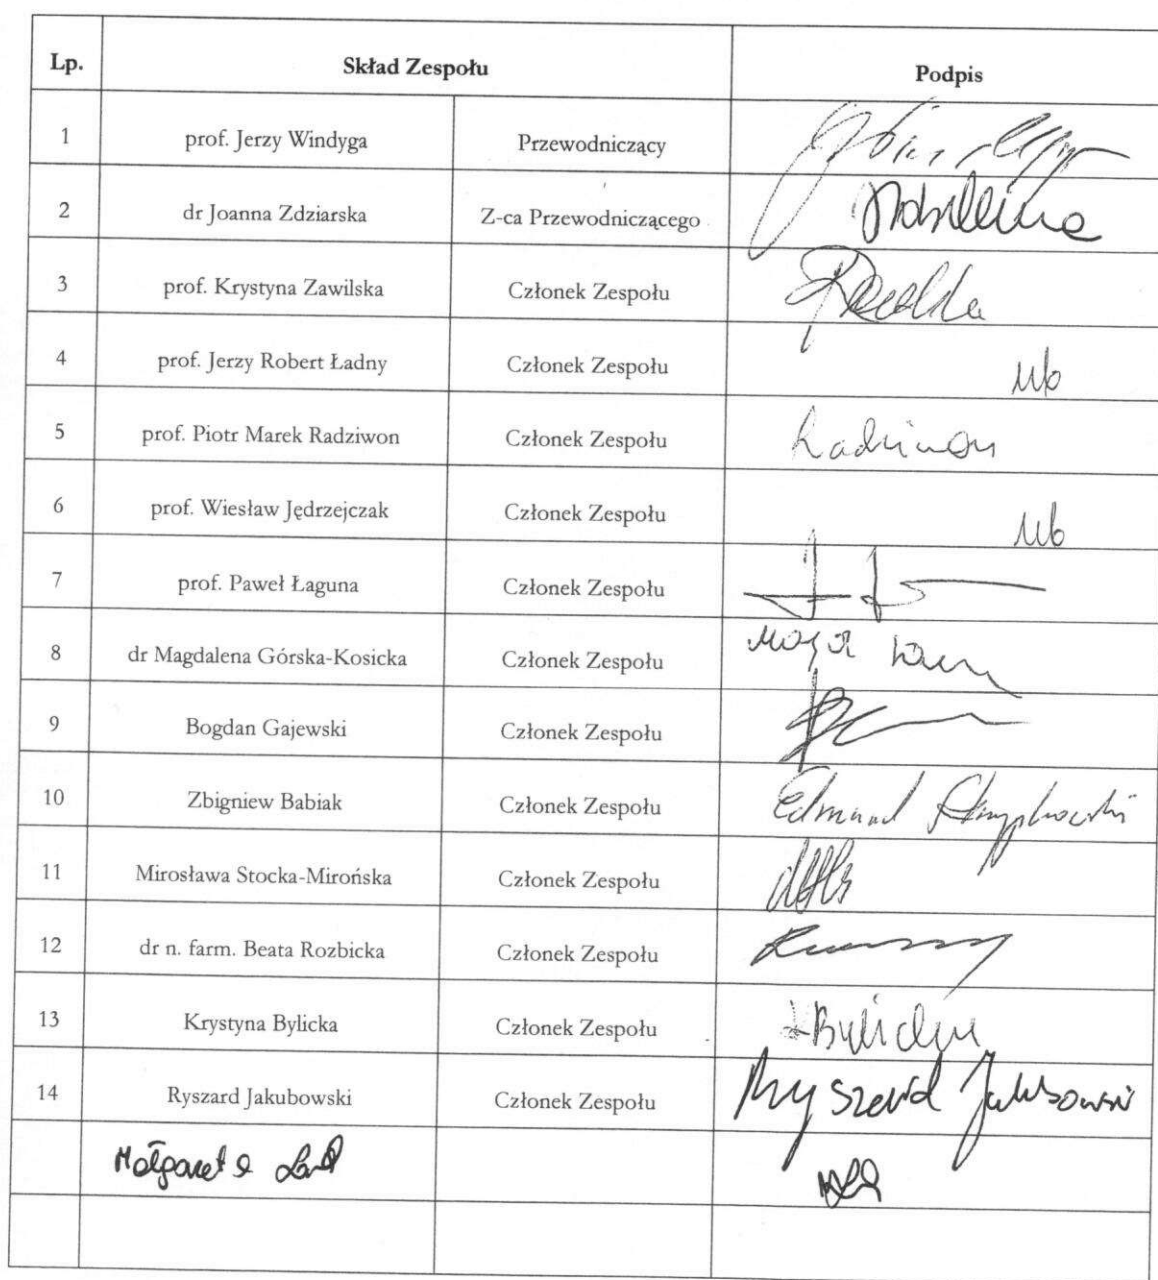 Lp. Skład Zespołu Podpis
1 prof. Jerzy Windyga Przewodniczący
2 dr Joanna Zdziarska Z-ca Przewodniczącego
3 prof. Krystyna Zawilska Członek Zespołu
4 prof. Jerzy Robert Ładny Członek Zespołu
5 prof. Piotr Marek Radziwon Członek Zespołu Radziwon
6 prof. Wiesław Jędrzejczak Członek Zespołu
7 prof. Paweł Łaguna Członek Zespołu
8 dr Magdalena Górska-Kosicka Członek Zespołu
9 Bogdan Gajewski Członek Zespołu
10 Zbigniew Babiak Członek Zespołu Edmund
11 Mirosława Stocka-Mirońska Członek Zespołu
12 dr n. farm. Beata Rozbicka Członek Zespołu
13 Krystyna Bylicka Członek Zespołu
14 Ryszard Jakubowski Członek Zespołu Ryszard Jakubowski